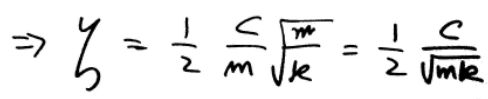 ⇒ ζ = 1/2 c/m √(m/k) = 1/2 c/√(mk)